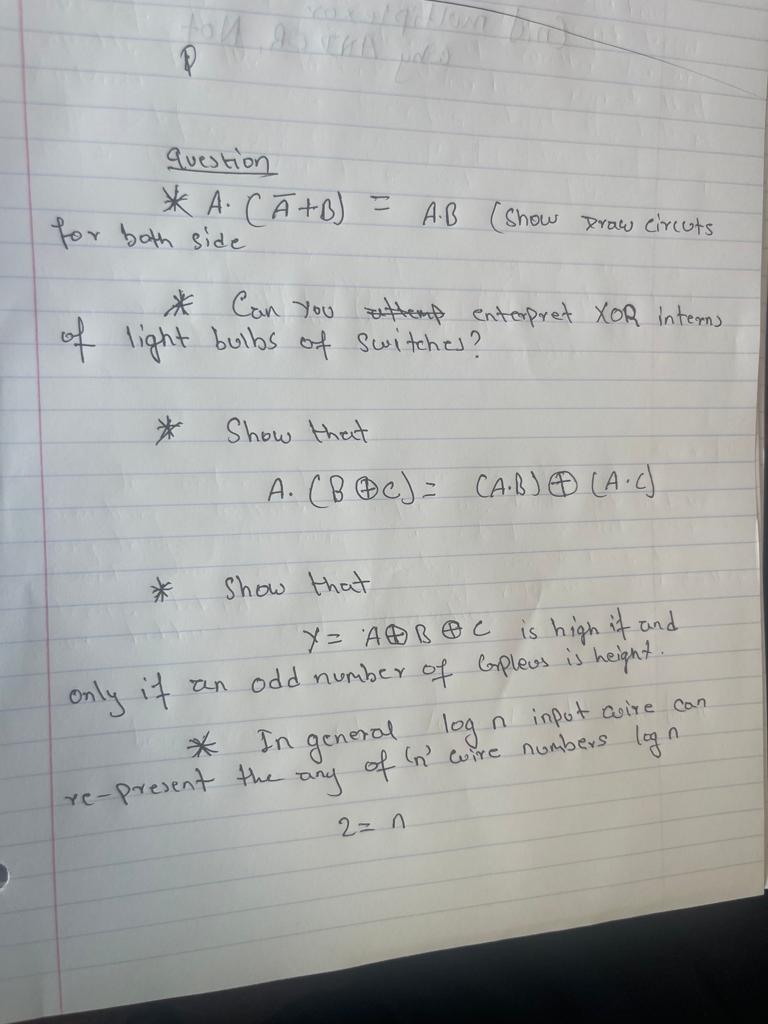 Question
* A. (Ā+B) = A.B (Show Draw circuts
for both side
* Can you enterpret XOR interms
of light bulbs of switches?
* Show that
A. (B⊕C) = (A.B) ⊕ (A.C)
* Show that
Y = A⊕B⊕C is high if and
only if an odd number of is height.
* In general log n input wire can
re-present the any of 'n' wire numbers log n
2 = n